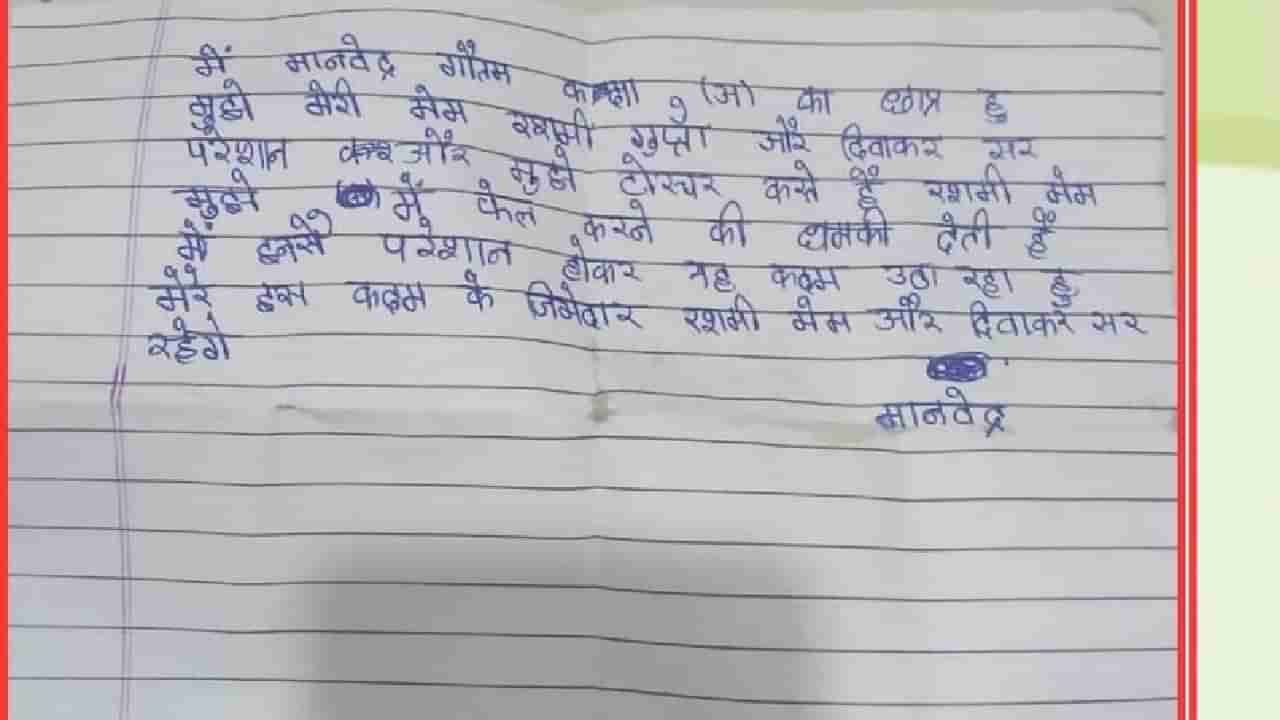 में मानवेद्र गौतम कक्षा 9 (अ) का छात्र हु
मुझे मेरी मेम रशमी गुप्ता और दिवाकर सर
परेशान और मुझे टोरचर करते हैं रशमी मेम
मुझे में फेल करने की धमकी देती हैं
में इनसे परेशान होकर यह कदम उठा रहा हु
मेरे इस कदम के जिमेदार रशमी मेम और दिवाकर सर
रहेगे
मानवेद्र